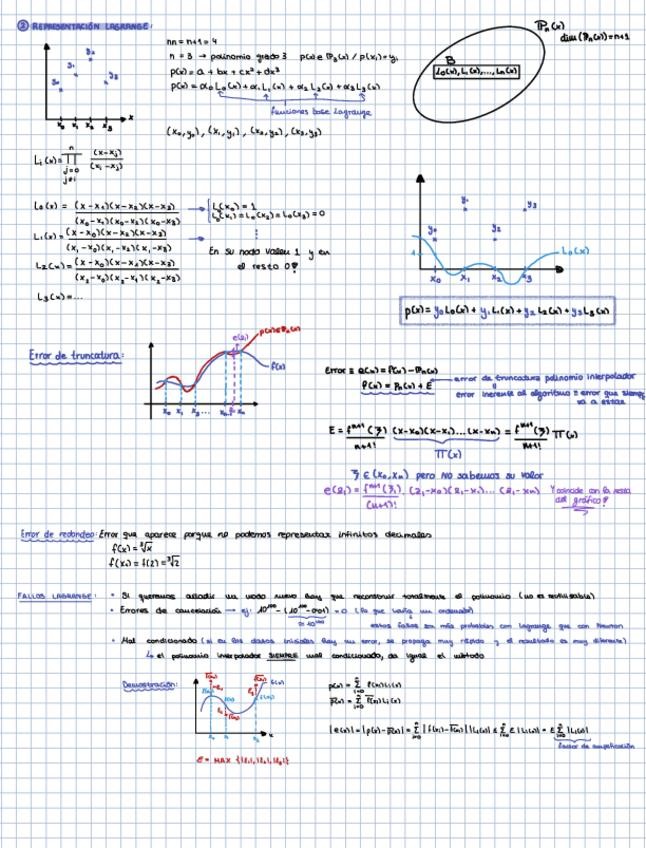 ② REPRESENTACIÓN LAGRANGE:
nn = n+1 = 4
n = 3 → polinomio grado 3 p(x) ∈ P₃(x) / p(xᵢ) = yᵢ
p(x) = a + bx + cx² + dx³
p(x) = α₀L₀(x) + α₁L₁(x) + α₂L₂(x) + α₃L₃(x)
funciones base Lagrange
(x₀,y₀), (x₁,y₁), (x₂,y₂), (x₃,y₃)
Pₙ(x)
dim(Pₙ(x)) = n+1
B
L₀(x), L₁(x), ..., Lₙ(x)
y₀ y₁ y₂ y₃
x₀ x₁ x₂ x₃ x
Lᵢ(x) = ∏ⁿ j=0 j≠i (x-xⱼ)/(xᵢ-xⱼ)
L₀(x) = (x-x₁)(x-x₂)(x-x₃)/(x₀-x₁)(x₀-x₂)(x₀-x₃) → L₀(x₀) = 1
L₀(x₁) = L₀(x₂) = L₀(x₃) = 0
L₁(x) = (x-x₀)(x-x₂)(x-x₃)/(x₁-x₀)(x₁-x₂)(x₁-x₃) →
L₂(x) = (x-x₀)(x-x₁)(x-x₃)/(x₂-x₀)(x₂-x₁)(x₂-x₃)
L₃(x) = ...
En su nodo valen 1 y en
el resto 0!
y₀ y₁ y₂ y₃
1
L₀(x)
x₀ x₁ x₂ x₃
p(x) = y₀L₀(x) + y₁L₁(x) + y₂L₂(x) + y₃L₃(x)
Error de truncatura:
e(z₁)
p(x) ∈ Pₙ(x)
f(x)
x₀ x₁ x₂ ... xₙ₋₁ z₁ xₙ
Error ≡ e(x) = f(x) - Pₙ(x)
f(x) = pₙ(x) + E
error de truncatura polinomio interpolador
error inherente al algoritmo = error que siempre
va a estar
E = fⁿ⁺¹(ξ)/n+1! (x-x₀)(x-x₁)...(x-xₙ) = fⁿ⁺¹(ξ)/n+1! Π(x)
Π(x)
ξ ∈ (x₀,xₙ) pero NO sabemos su valor
e(z₁) = fⁿ⁺¹(ξ₁)/(n+1)! (z₁-x₀)(z₁-x₁)...(z₁-xₙ)
Y coincide con la resta
del gráfico!
Error de redondeo: Error que aparece porque no podemos representar infinitos decimales
f(x) = ³√x
f(x₀) = f(2) = ³√2
FALLOS LAGRANGE:
• Si queremos añadir un nodo nuevo hay que reconstruir totalmente el polinomio (no es reutilizable)
• Errores de cancelación → ej: 10¹⁰⁰ - (10¹⁰⁰ - 0'01) = 0 (lo que haría un ordenador)
≈ 10¹⁰⁰
estos fallos son más probables con Lagrange que con Newton
• Mal condicionado (si en los datos iniciales hay un error, se propaga muy rápido y el resultado es muy diferente)
↳ el polinomio interpolador SIEMPRE mal condicionado, da igual el método
Demostración:
f(x)
x
ε = MAX {|ε₀|, |ε₁|, |ε₂|}
p(x) = Σⁿ i=0 f(xᵢ)Lᵢ(x)
p̅(x) = Σⁿ i=0 f̅(xᵢ)Lᵢ(x)
|e(x)| = |p(x) - p̅(x)| = Σⁿ i=0 |f(xᵢ) - f̅(xᵢ)||Lᵢ(x)| ≤ Σⁿ i=0 ε|Lᵢ(x)| = ε Σⁿ i=0 |Lᵢ(x)|
factor de amplificación